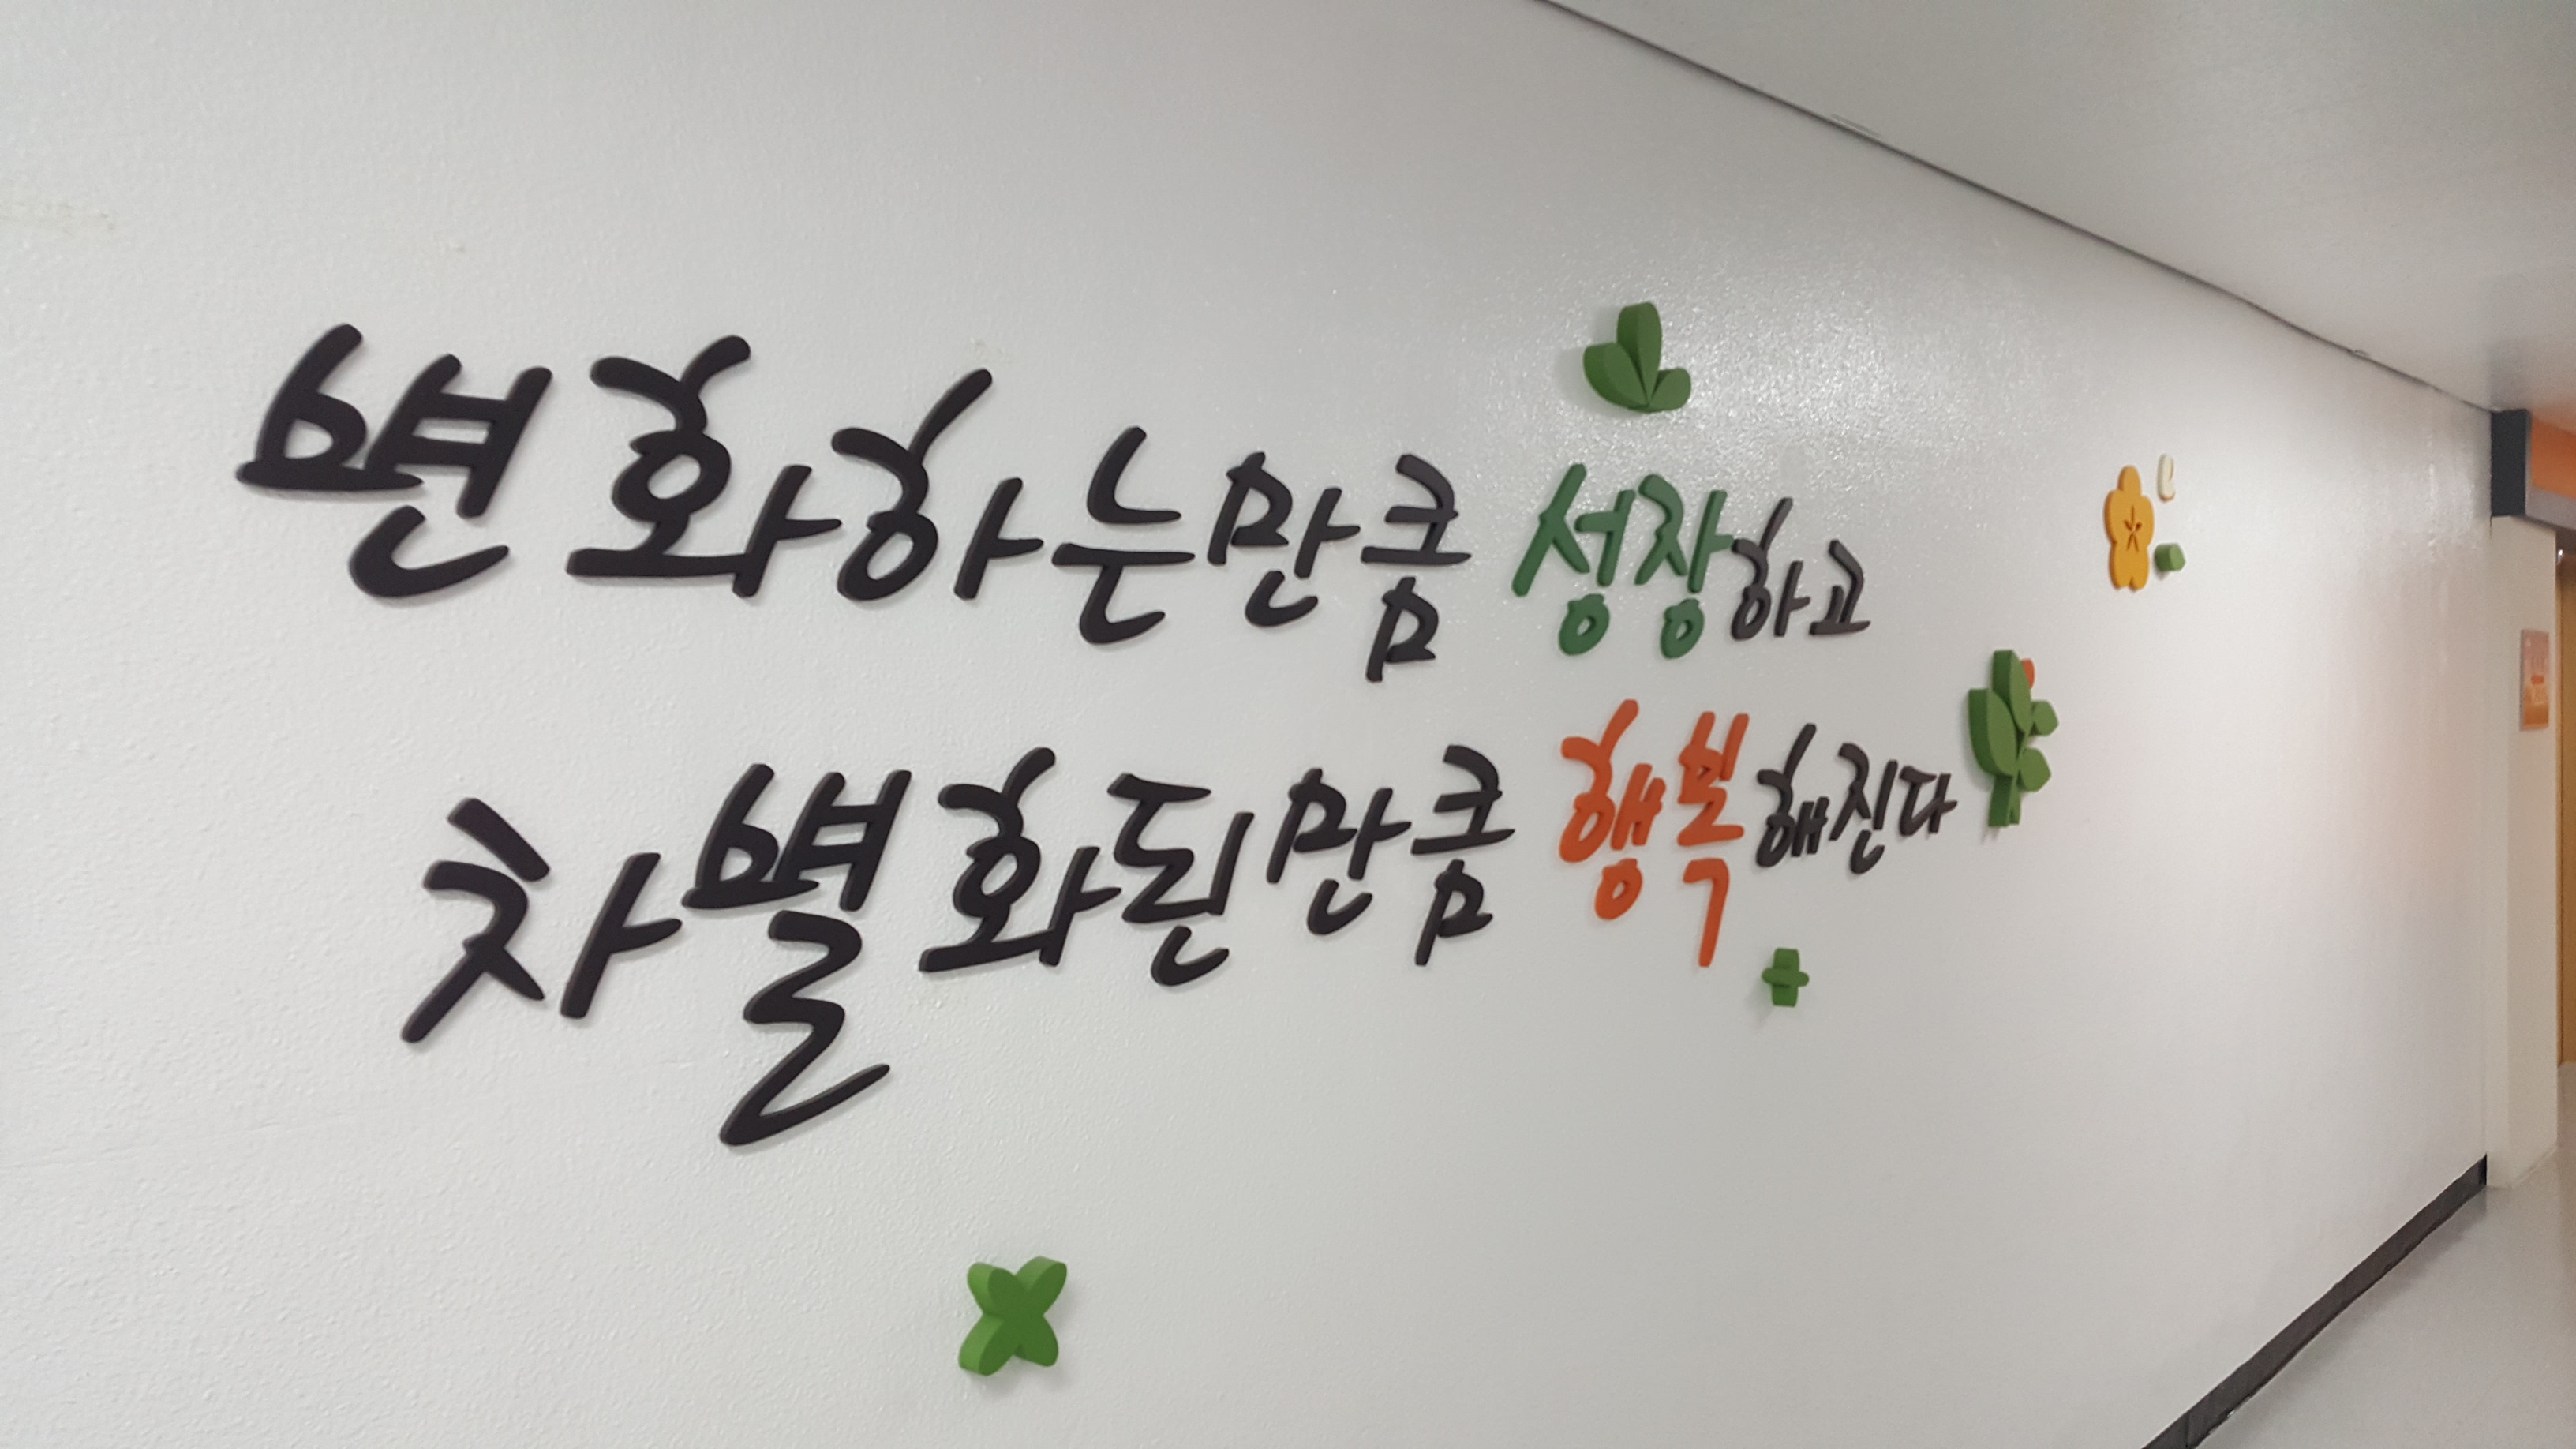 변화하는만큼 성장하고
차별화된만큼 행복해진다